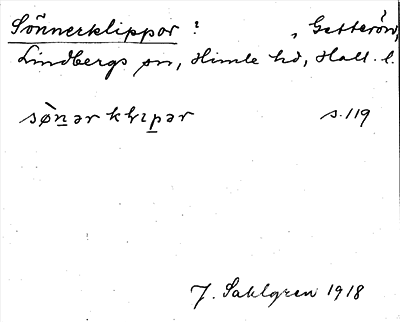 Sönnerklippor ? , Getterön,
Lindbergs sn, Himle hd, Hall. l.
sø̀nər klɪpər s. 119
J. Sahlgren 1918